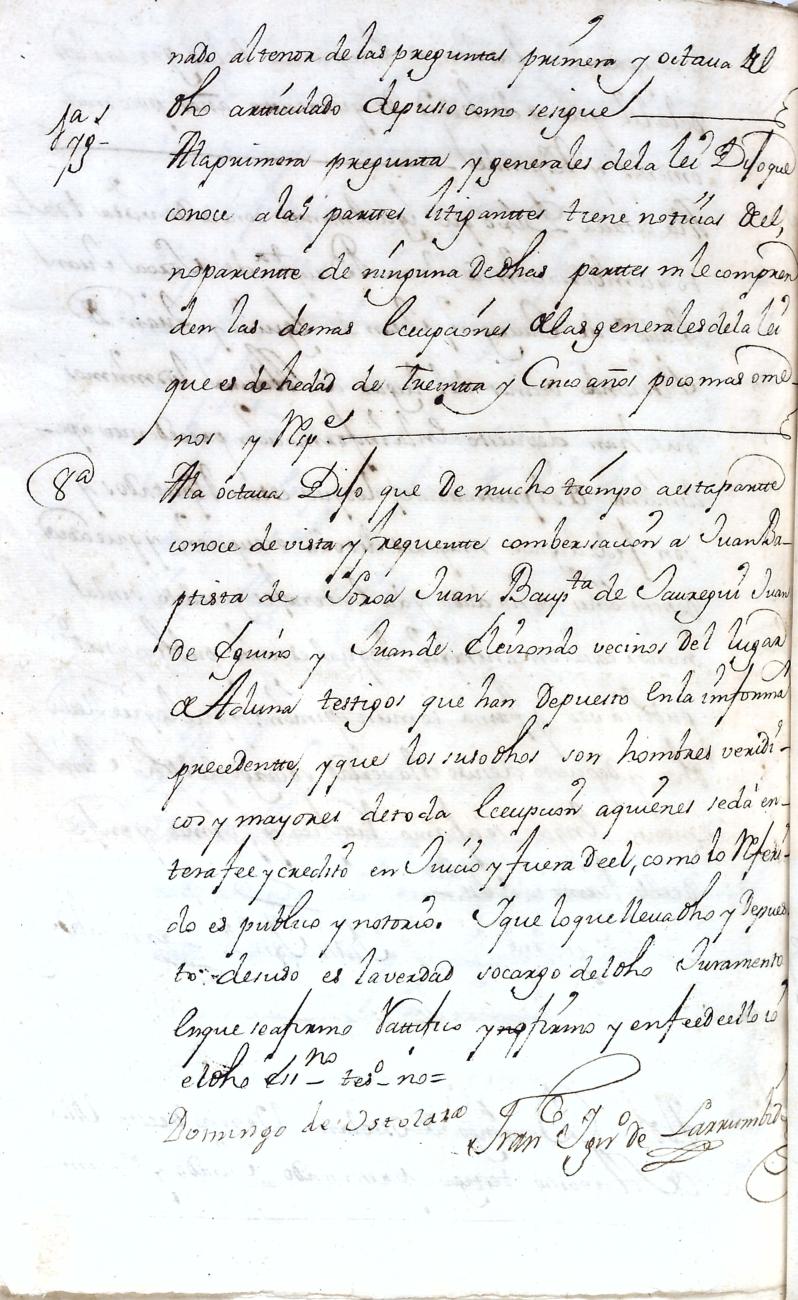 nado altenor de las preguntas primera y octaua del
dho articulado depusso como sesigue
1a y
gs
Ala primera pregunta y generales dela lei Dijo que
conoce alas parttes litiganttes tiene noticias del,
no parientte de ninguna Dedhas parttes ni le compren
den las demas Excepciones delas generales dela lei
que es de hedad de Treintta y Cinco años poco mas ome
nos y Respe
8a
Ala octaua Dijo que De mucho tiempo aesta partte
conoce de vista y frequentte combersacion a Juan Ba-
ptista de Soroa Juan Baupta de Jauregui Juan
de Eguino y Juan de Eleizondo vecinos Del lugar
de Aduna testigos que han Depuesto En la informa
precedentte, y que los susodhos son hombres veridi-
cos y mayores detoda Excepcion aquienes seda en-
tera fee y credito en Juicio y fuera De el, como lo Referi-
do es publico y notorio. Y que lo que lleua dho y Depues
to desuso es la verdad so cargo del dho Juramento
En que se afirmo Rattifico y no firmo y en fee de ello io
el dho essno teso no=
Domingo de Ostolaza
Fran Igno de Larrumbide